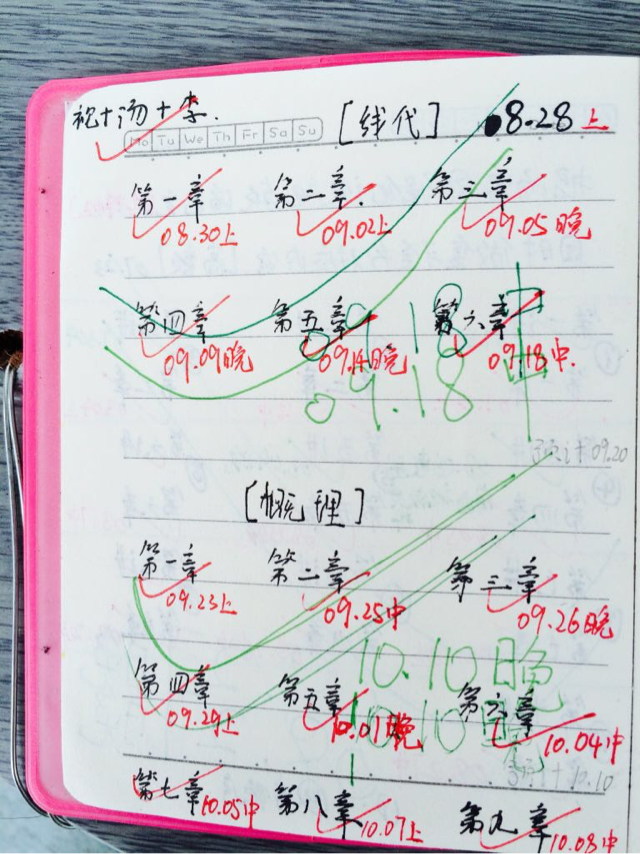 祝+汤+李.
Mo Tu We Th Fr Sa Su
[线代] 08.28上
第一章 第二章. 第三章
08.30上 09.02上 09.05晚
第四章 第五章 第六章
09.09晚 09.14晚 09.18中.
09.18中
09.18
预计09.20
[概统理]
第一章 第二章 第三章
09.23上 09.25中 09.26晚
10.10晚
第四章 第五章 第六章
09.29上 10.01晚 10.04中
10.10晚
预计10.10
第七章 第八章 第九章
10.05中 10.07上 10.08中